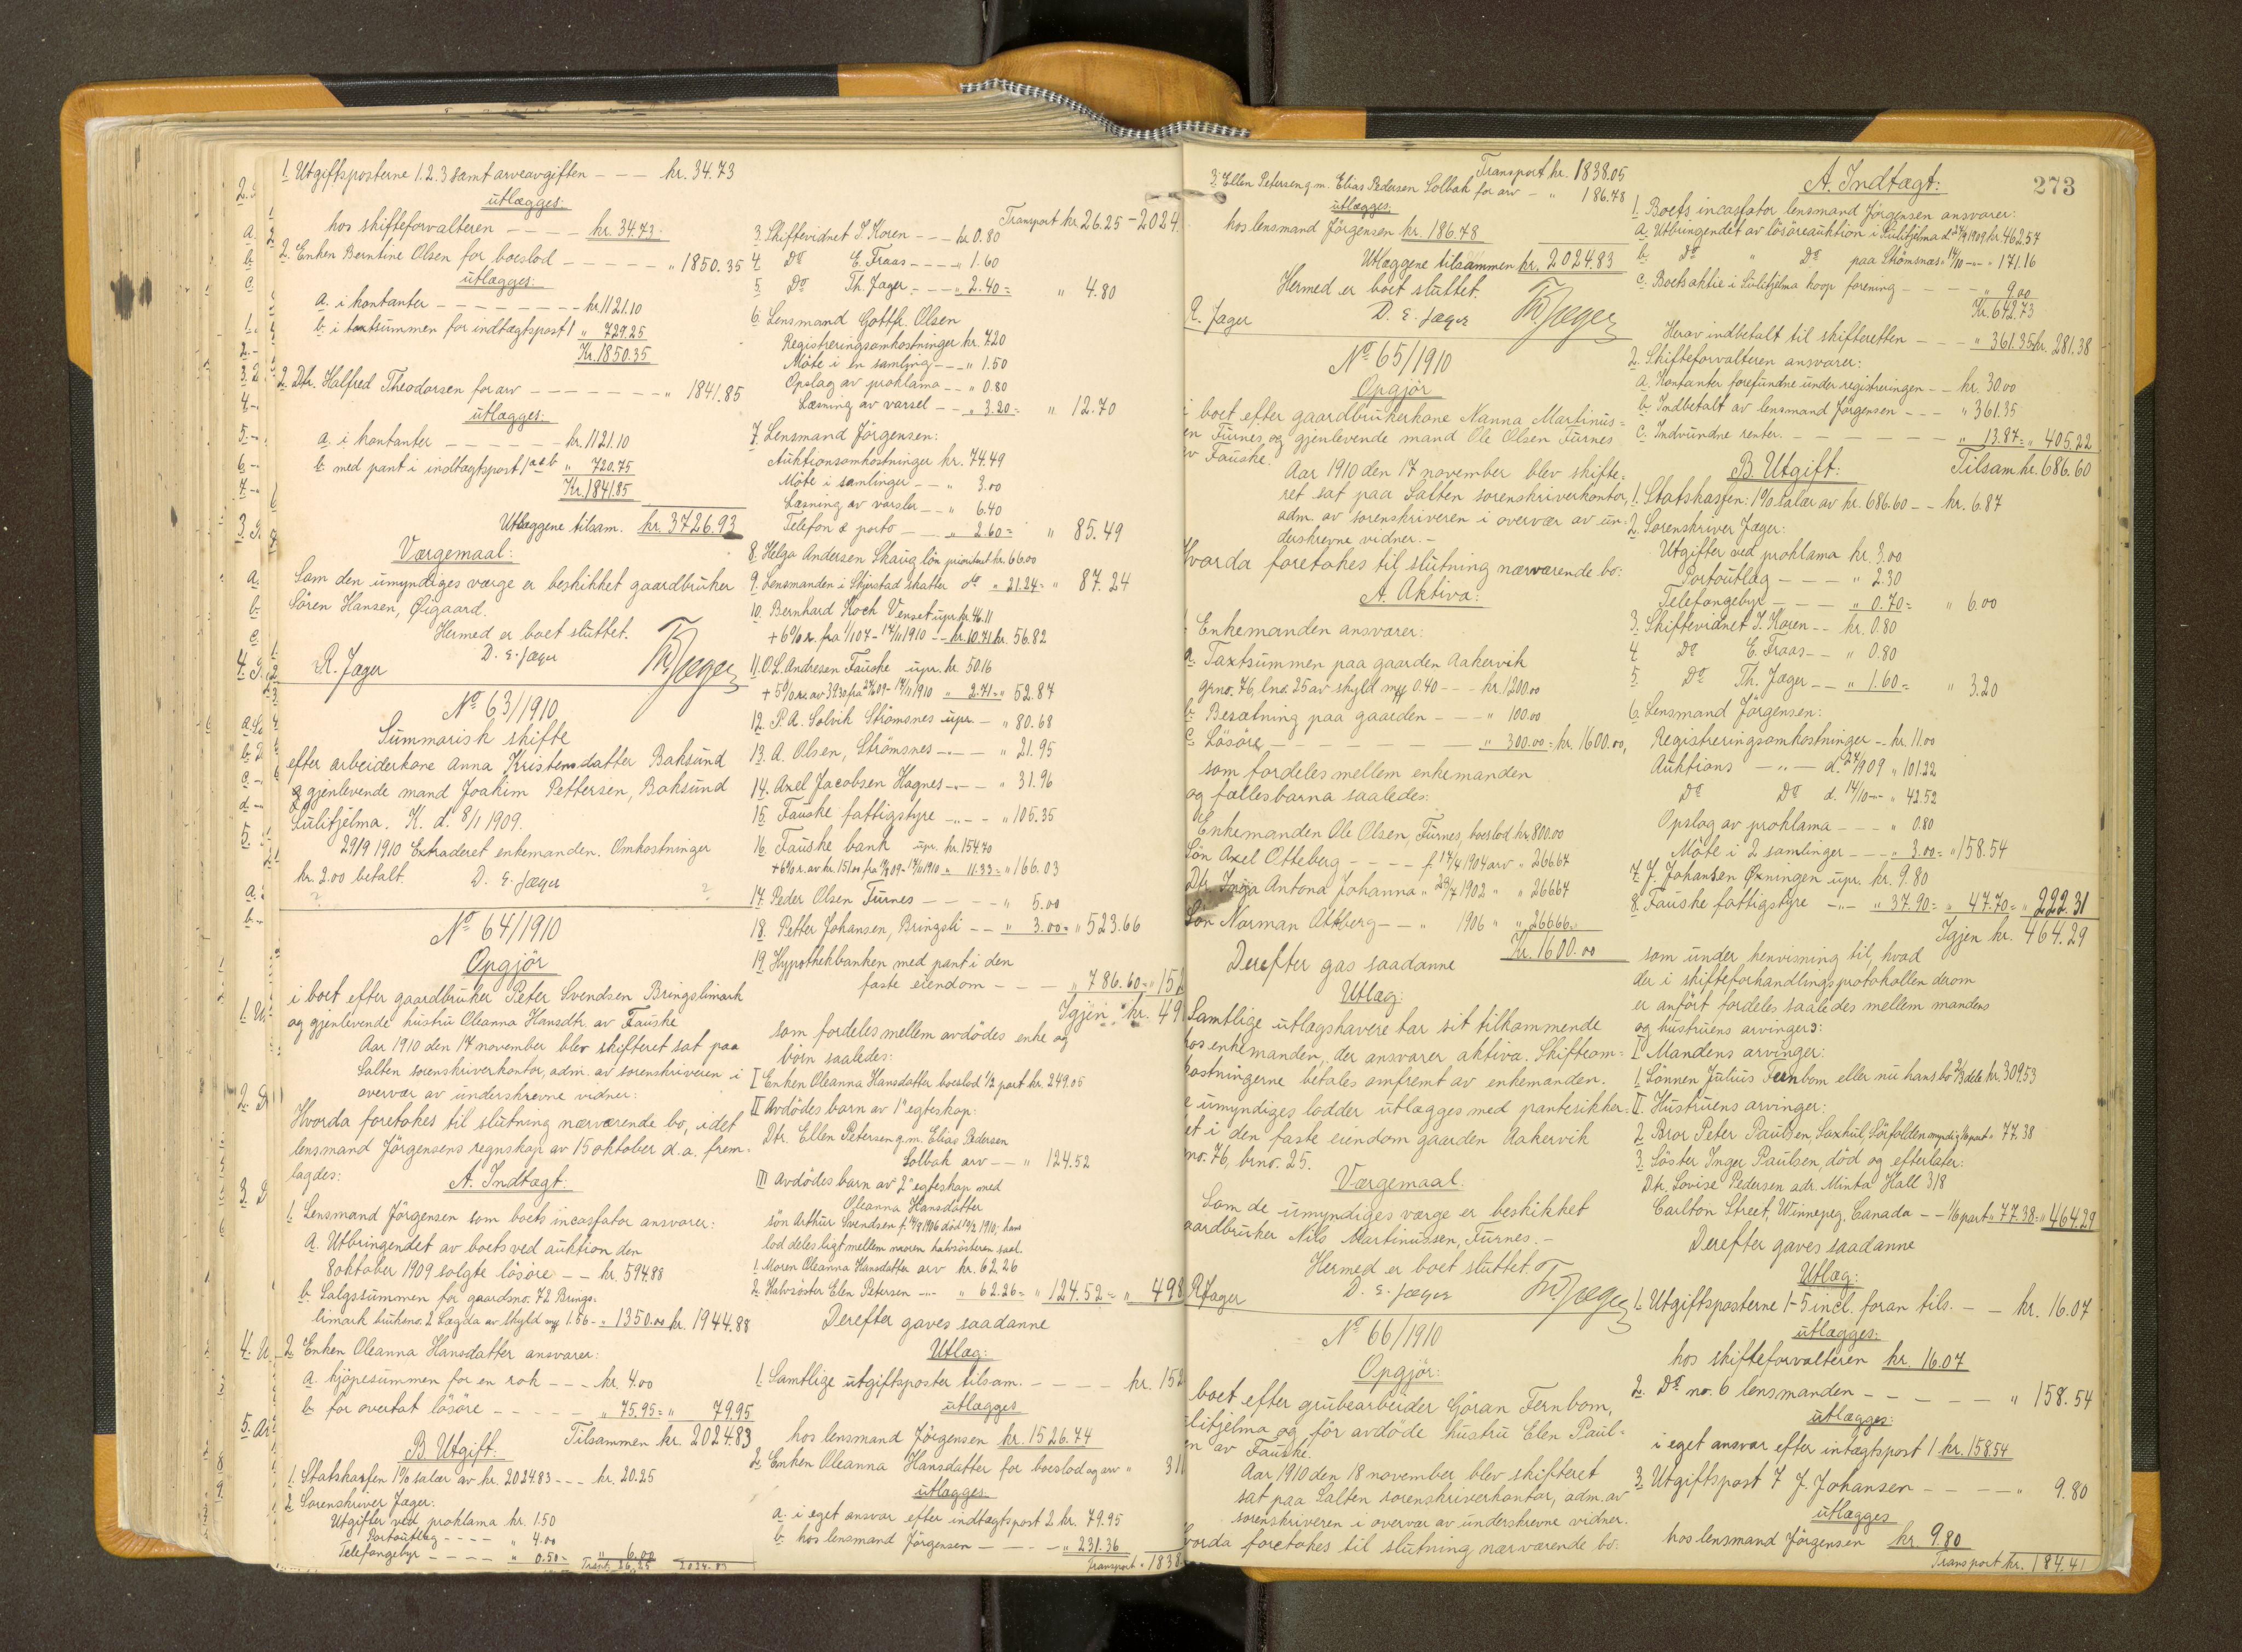 1. Utgiftsposterne 1.2.3 samt arveavgiften - - - kr. 34.73
utlægges:
hos skifteforvalteren - - - - kr. 34.73.
2. Enken Berntine Olsen for boeslod - - - - - „ 1850.35
utlægges:
a. i kontanter - - - - - - - kr. 1121.10
b. i taxtsummen for indtægtspost 1 „ 729.25
Kr. 1850.35
2. Dtr. Halfred Theodorsen for arv - - - - - - - „ 1841.85
utlægges:
a. i kontanter - - - - - - kr. 1121.10
b. med pant i indtægtspost 1 a & b „ 720.75
Kr. 1841.85
Utlæggene tilsam. kr. 3726.93
Værgemaal:
Som den umyndiges værge er beskikket gaardbruker
Sören Hansen, Øigaard.
Hermed er boet sluttet.
R. Jager D. E. Jæger Th. Jæger
No 63/1910
Summarisk skifte
efter arbeiderkone Anna Kristensdatter Baksund
og gjenlevende mand Joakim Pettersen, Baksund
Sulitjelma. K. d. 8/1 1909.
29/9 1910 Extraderet enkemanden. Omkostninger
kr. 2.00 betalt. D. E. Jæger
No 64/1910
Opgjör
i boet efter gaardbruker Peter Svendsen Bringslimark
og gjenlevende hustru Oleanna Hansdtr. av Fauske
Aar 1910 den 17 november blev skifteret sat paa
Salten sorenskriverkontor, adm. av sorenskriveren i
overvær av underskrevne vidner:
Hvorda foretokes til slutning nærværende bo, idet
lensmand Jörgensens regnskap av 15 oktober d.a. frem-
lagdes:
A. Indtægt:
1. Lensmand Jörgensen som boets incassator ansvarer:
a. Utbringendet av boets ved auktion den
8 oktober 1909 solgte lösöre - - kr. 594.88
b. Salgssummen for gaardsno. 72 Brings-
limark bruksno. 2 Lagda av skyld my 1.56 - „ 1350.00 kr. 1944.88
2. Enken Oleanna Hansdatter ansvarer:
a. kjöpesummen for en rok - - - kr. 4.00
b. for overtat lösöre - - - - - „ 75.95 = „ 79.95
Tilsammen kr. 2024.83
B. Utgift:
1. Statskassen 1% salær av kr. 2024.83 - - - kr. 20.25
2. Sorenskriver Jæger:
Utgifter ved proklama kr. 1.50
Portoutlæg - - - - „ 4.00
Telefongebyr - - - - „ 0.50 = „ 6.00
Transp. 26.25 2024.83
Transport kr. 26.25 - 2024.
3. Skiftevidnet J. Koren - - - kr. 0.80
4. Do E. Fraas - - - - „ 1.60
5. Do Th. Jager - - - „ 2.40 = „ 4.80
6. Lensmand Gottfr. Olsen
Registreringsomkostninger kr. 7.20
Möte i en samling - - - „ 1.50
Opslag av proklama - - „ 0.80
Læsning av varsel - - „ 3.20 = „ 12.70
7. Lensmand Jörgensen:
Auktionsomkostninger kr. 74.49
Möte i samlinger - - „ 3.00
Læsning av varsler - - „ 6.40
Telefon & porto - - - „ 2.60 = „ 85.49
8. Helga Andersen Skaug lön prioritert kr. 66.00
9. Lensmanden i Skjerstad skatter do „ 21.24 = „ 87.24
10. Bernhard Koch Venset upr. kr. 46.11
+ 6% r. fra 1/1 07 - 17/11 1910 - - kr. 10.71 kr. 56.82
11. O.L. Andresen Fauske upr. kr. 50.16
+ 5% r. av 39.30 fra 09 - 17/11 1910 „ 2.71 = „ 52.87
12. P.A. Solvik Strömsnes upr. - „ 80.68
13. A. Olsen, Strömsnes -„- - „ 21.95
14. Axel Jacobsen Hagnes -„- - „ 31.96
15. Fauske fattigstyre -„- - „ 105.35
16. Fauske bank upr. kr. 154.70
+ 6% r. av kr. 151.00 fra 09 - 17/11 1910 „ 11.33 = „ 166.03
17. Peder Olsen Furnes - - - - „ 5.00
18. Petter Johansen, Bringsli - - „ 3.00 = „ 523.66
19. Hypothekbanken med pant i den
faste eiendom - - - „ 786.60 = „ 152
Igjen kr. 49
som fordeles mellem avdödes enke og
börn saaledes:
I Enken Oleanna Hansdatter boeslod 1/2 part kr. 249.05
II Avdödes barn av 1ste egteskap:
Dtr. Ellen Petersen g.m. Elias Pedersen
Solbak arv - - „ 124.52
III Avdödes barn av 2det egteskap med
Oleanna Hansdatter
sön Arthur Svendsen f. 1906 död 1910; hans
lod deles ligt mellem moren halvsösteren saal.
1. Moren Oleanna Hansdatter arv kr. 62.26
2. Halvsöster Elen Petersen -„- „ 62.26 = „ 124.52 = „ 498
Derefter gaves saadanne
Utlæg:
1. Samtlige utgiftsposter tilsam. - - - - kr. 152
utlægges
hos lensmand Jörgensen kr. 1526.74
2. Enken Oleanna Hansdatter for boeslod og arv „ 311
utlægges:
a. i eget ansvar efter indtægtspost 2 kr. 79.95
b. hos lensmand Jörgensen - - - - „ 231.36
Transport „ 1838.
Transport kr. 1838.05
3. Ellen Petersen g.m. Elias Pedersen Solbak for arv - „ 186.78
utlægges:
hos lensmand Jörgensen kr. 186.78
Utlæggene tilsammen kr. 2024.83
Hermed er boet sluttet.
R. Jager D. E. Jæger Th. Jæger
No 65/1910
Opgjör
i boet efter gaardbrukerkone Nanna Martinus-
en Furnes og gjenlevende mand Ole Olsen Furnes
av Fauske.
Aar 1910 den 17 november blev skifte-
ret sat paa Salten sorenskriverkontor,
adm. av sorenskriveren i overvær av un-
derskrevne vidner. -
Hvorda foretokes til slutning nærværende bo:
A. Aktiva:
Enkemanden ansvarer:
a. Taxtsummen paa gaarden Aakervik
grno. 76, bno. 25 av skyld my 0.40 - - - kr. 1200.00
b. Besætning paa gaarden - - - „ 100.00
c. Lösöre - - - - - - - „ 300.00 = kr. 1600.00,
som fordeles mellem enkemanden
og fællesbarna saaledes:
Enkemanden Ole Olsen, Furnes, boeslod kr. 800.00
Sön Axel Otteberg - - - - f. 17/4 1904 arv „ 266.67
Dtr. Inga Antona Johanna „ 29/7 1902 „ „ 266.67
Sön Norman Ottberg - - „ 1906 „ „ 266.66
Kr. 1600.00
Derefter gas saadanne
Utlæg:
Samtlige utlægshavere har sit tilkommende
hos enkemanden, der ansvarer aktiva. Skifteom-
kostningerne betales omfremt av enkemanden.
e umyndiges lodder utlægges med pantesikker-
et i den faste eiendom gaarden Aakervik
no. 76, brno. 25.
Værgemaal.
Som de umyndiges værge er beskikket
aardbruker Nils Martinussen, Furnes. -
Hermed er boet sluttet.
R. Jager D. E. Jæger Th. Jæger
No 66/1910
Opgjör:
boet efter grubearbeider Göran Fernbom,
ulitjelma og för avdöde hustru Elen Paul-
en av Fauske.
Aar 1910 den 18 november blev skifteret
sat paa Salten sorenskriverkontor, adm. av
sorenskriveren i overvær av underskrevne vidner.
vorda foretokes til slutning nærværende bo:
273
A. Indtægt:
1. Boets incassator lensmand Jörgensen ansvarer:
a. Utbringendet av lösöreauktion i Sulitjelma d. 27/9 1909 kr. 462.57
b. Do „ Do paa Strömsnes „ 14/10 -„- „ 171.16
c. Boets aktie i Sulitjelma koop forening - - - - „ 9.00
Kr. 642.73
Herav indbetalt til skifteretten - - - „ 361.35 kr. 281.38
2. Skifteforvalteren ansvarer:
a. Kontanter forefundne under registreringen - - kr. 30.00
b. Indbetalt av lensmand Jörgensen - - - „ 361.35
c. Indvundne renter - - - - - - „ 13.87 = „ 405.22
Tilsam kr. 686.60
B. Utgift:
1. Statskassen: 1% salær av kr. 686.60 - - kr. 6.87
2. Sorenskriver Jæger:
Utgifter ved proklama kr. 3.00
Portoutlæg - - - „ 2.30
Telefongebyr - - - „ 0.70 = „ 6.00
3. Skiftevidnet J. Koren - - kr. 0.80
4. Do E. Fraas - - „ 0.80
5. Do Th. Jæger - - „ 1.60 = „ 3.20
6. Lensmand Jörgensen:
Registreringsomkostninger - - kr. 11.00
Auktions -„- d. 27/9 09 „ 101.22
Do Do d. 14/10 -„- „ 42.52
Opslag av proklama - - - „ 0.80
Möte i 2 samlinger - - - „ 3.00 = „ 158.54
7. J. Johansen Øxningen upr. kr. 9.80
8. Fauske fattigstyre -„- „ 37.90 = „ 47.70 = „ 222.31
Igjen kr. 464.29
som under henvisning til, hvad
der i skifteforhandlingsprotokollen derom
er anfört fordeles saaledes mellem mandens
og hustruens arvinger:
I Mandens arvinger:
1. Sönnen Julius Fernbom eller nu hans bo 2/3 dele kr. 309.53
II. Hustruens arvinger:
2. Bror Peter Paulsen, Laxhul, Sörfolden myndig 1/6 part „ 77.38
3. Söster Inger Paulsen, död og efterlater:
Dtr. Lovise Pedersen adr. Minto Hall 318
Carlton Street, Winnepeg, Canada - - 1/6 part „ 77.38 = „ 464.29
Derefter gaves saadanne
Utlæg:
1. Utgiftsposterne 1-5 incl. foran tils. - - kr. 16.07
utlægges:
hos skifteforvalteren kr. 16.07
2. Do no. 6 lensmanden - - - - - „ 158.54
utlægges:
i eget ansvar efter intægtspost 1 kr. 158.54
3. Utgiftspost 7 J. Johansen - - - - „ 9.80
utlægges
hos lensmand Jörgensen kr. 9.80
Transport kr. 184.41